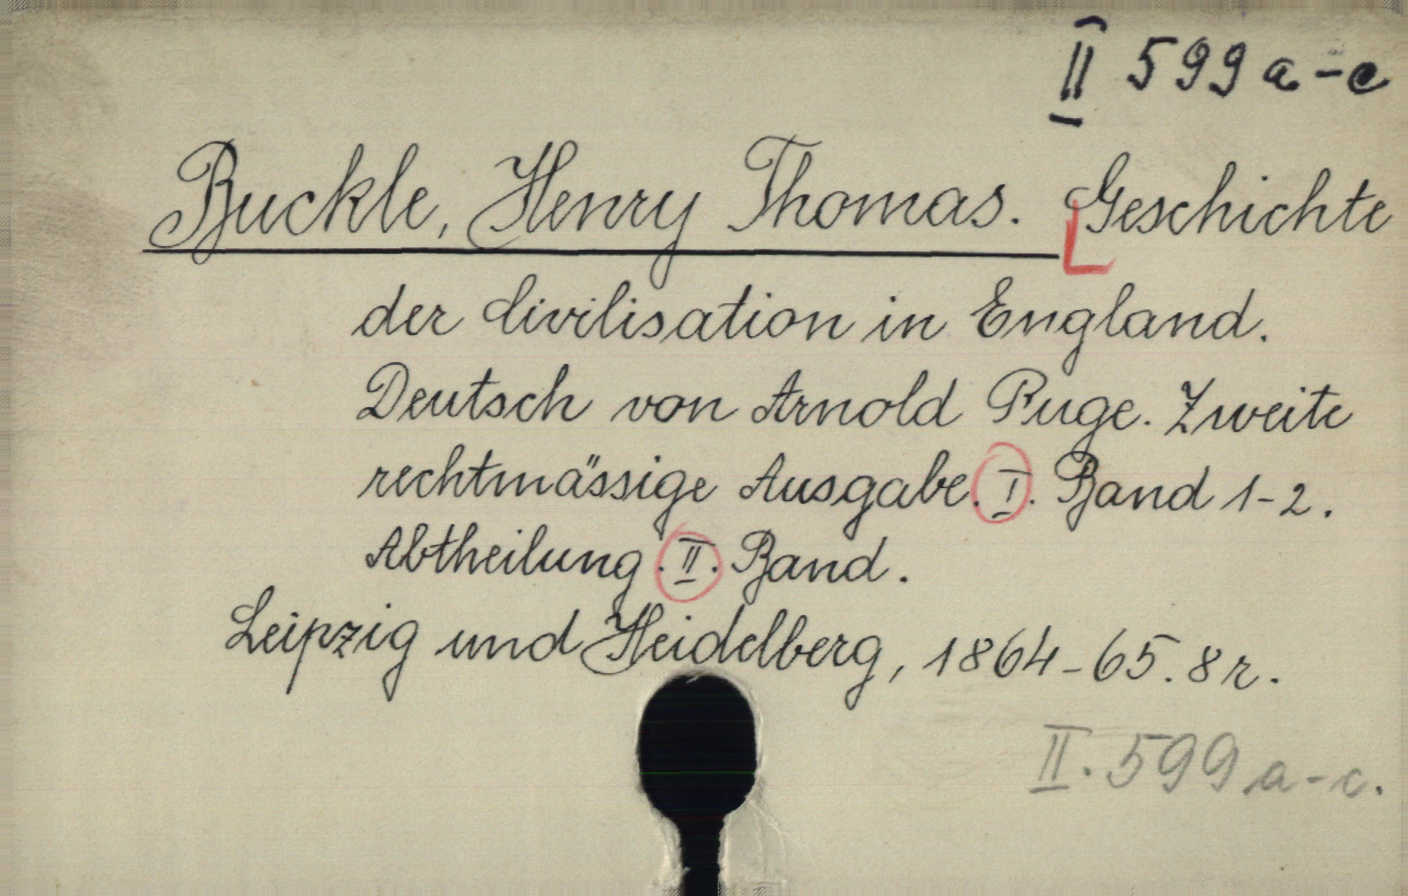 II 599 a-c
Buckle, Henry Thomas. Geschichte
der Civilisation in England.
Deutsch von Arnold Ruge. Zweite
rechtmässige Ausgabe. I. Band 1-2.
Abtheilung. II. Band.
Leipzig und Heidelberg, 1864-65. 8r.
II. 599 a-c.